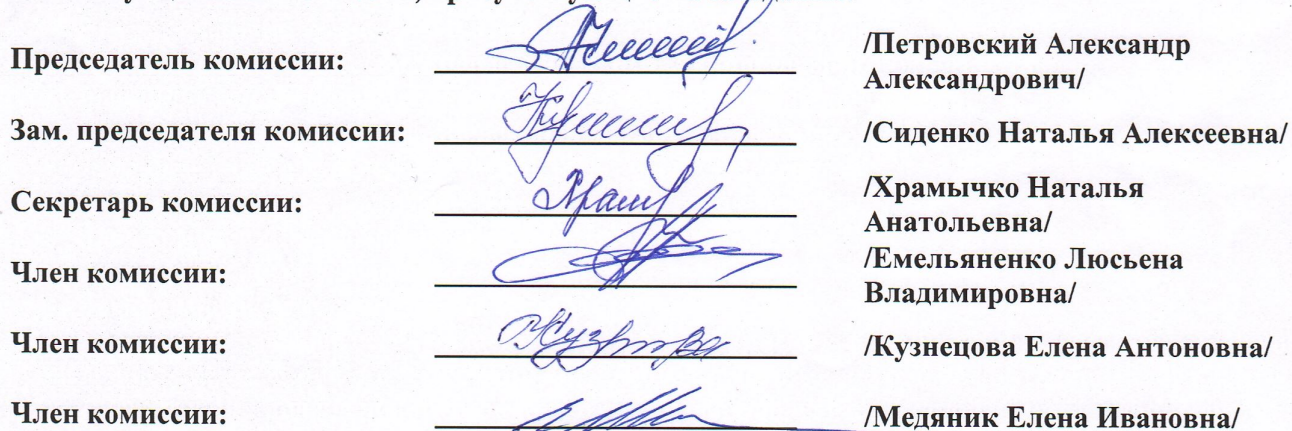 Председатель комиссии: /Петровский Александр
Александрович/
Зам. председателя комиссии: /Сиденко Наталья Алексеевна/
Секретарь комиссии: /Храмычко Наталья
Анатольевна/
Член комиссии: /Емельяненко Люсьена
Владимировна/
Член комиссии: /Кузнецова Елена Антоновна/
Член комиссии: /Медяник Елена Ивановна/